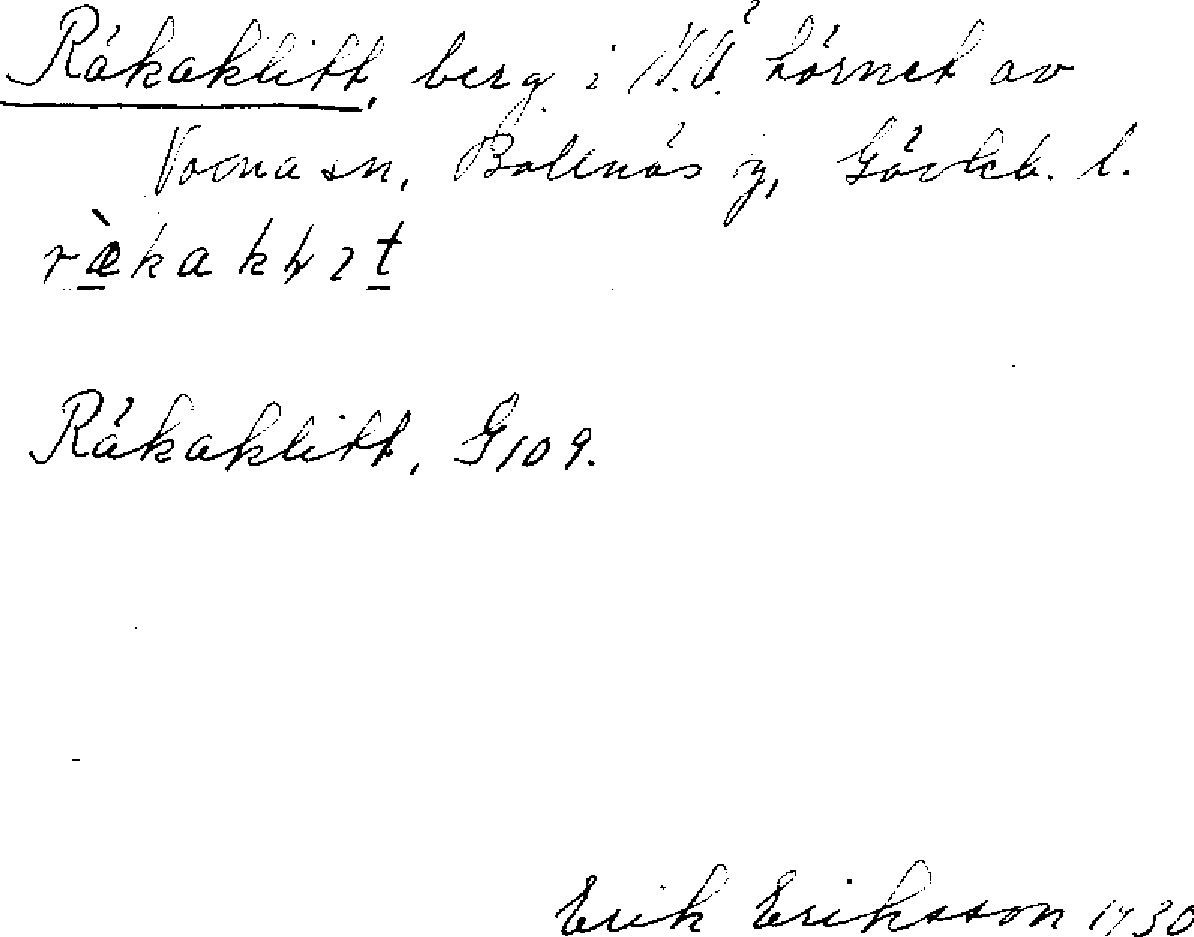 Räkaklitt, berg i N.Ö. hörnet av
Voxna sn, Bollnäs Gävleb. l.
ræ̀kaklɩt
Räkaklitt, G109.
Erik Eriksson 1930